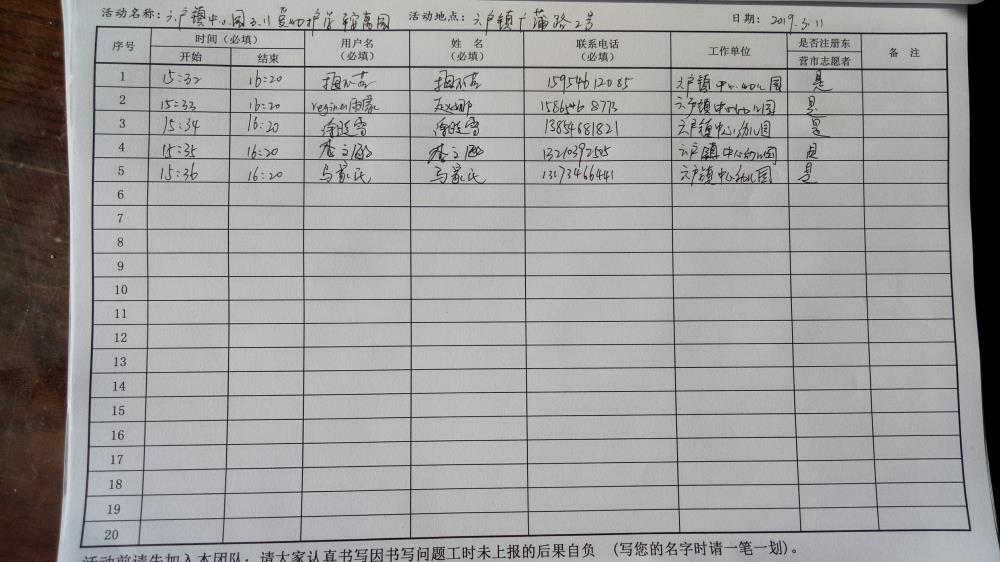 活动名称：六户镇中心园3.11爱心护学 活动地点：六户镇广蒲路2号 日期：2019.3.11
序号 时间（必填） 用户名（必填） 姓 名（必填） 联系电话（必填） 工作单位 是否注册东营市志愿者 备 注
开始 结束
1 15:32 16:20 15954612085 六户镇中心幼儿园 是
2 15:33 16:20 1586468773 六户镇中心幼儿园 是
3 15:34 16:20 徐晓雪 徐晓雪 13854681821 六户镇中心幼儿园 是
4 15:35 16:20 13210392505 六户镇中心幼儿园 是
5 15:36 16:20 马家氏 马家氏 13173466441 六户镇中心幼儿园 是
6
7
8
9
10
11
12
13
14
15
16
17
18
19
20
活动前请先加入本团队；请大家认真书写因书写问题工时未上报的后果自负 （写您的名字时请一笔一划）。